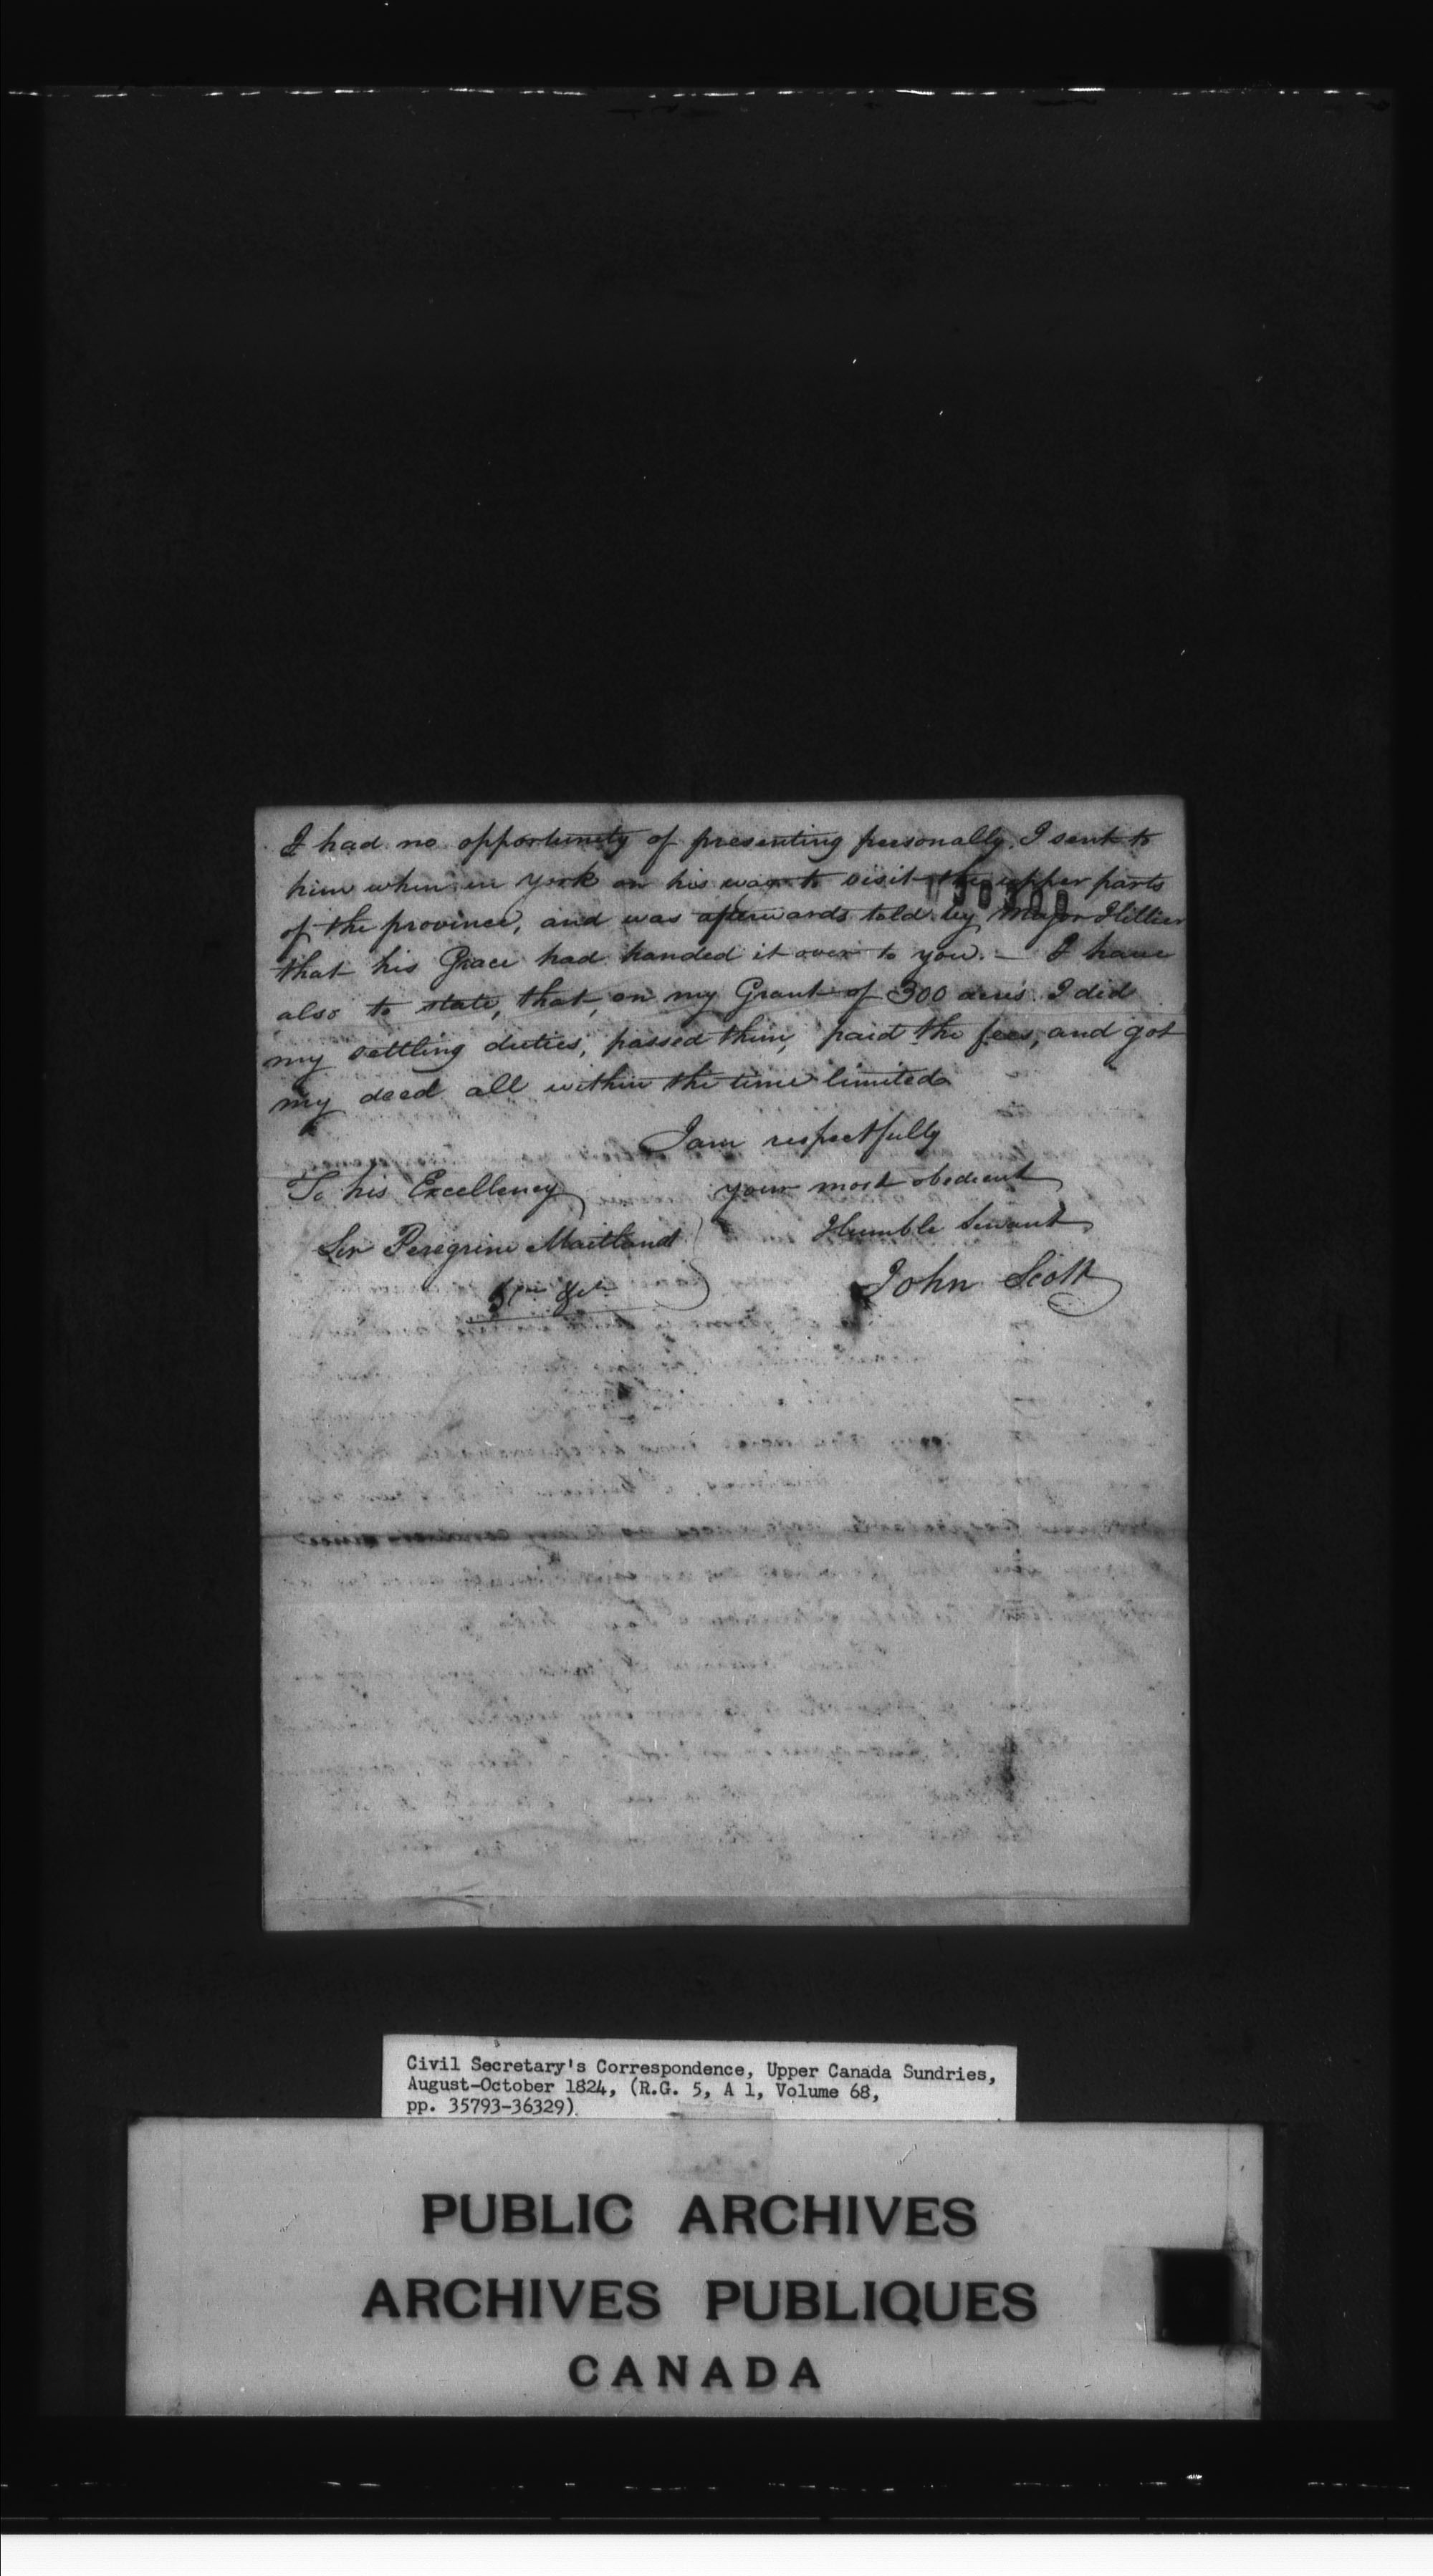 I had no opportunity of presenting personally. I sent to
him when in York on his way to visit the upper parts
of the province, and was afterwards told by Major Hillier
that his Grace had handed it over to you. – I have
also to state, that, on my Grant of 300 acres I did
my settling duties, passed them, paid the fees, and got
my deed all within the time limited
I am respectfully
To his Excellency
your most obedient
Sir Peregrine Maitland
Humble Servant
John Scott
Civil Secretary's Correspondence, Upper Canada Sundries,
August-October 1824, (R.G. 5, A 1, Volume 68,
pp. 35793-36329)
PUBLIC ARCHIVES
ARCHIVES PUBLIQUES
CANADA